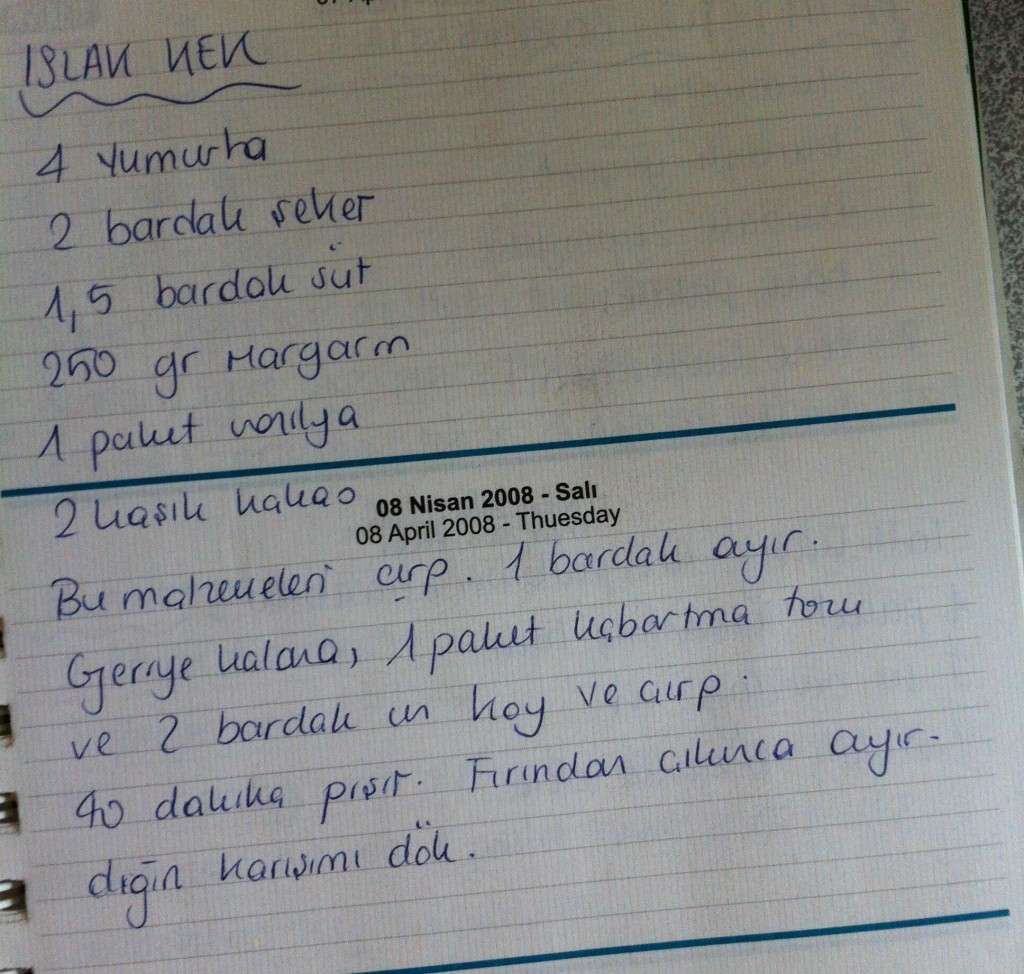 ISLAK KEK
4 Yumurta
2 bardak şeker
1,5 bardak süt
250 gr Margarin
1 paket vanilya
2 kaşık kakao
08 Nisan 2008 - Salı
08 April 2008 - Thuesday
Bu malzemeleri çırp. 1 bardak ayır.
Geriye kalana, 1 paket kabartma tozu
ve 2 bardak un koy ve çırp.
40 dakika pişir. Fırından çıkınca ayır-
dığın karışımı dök.